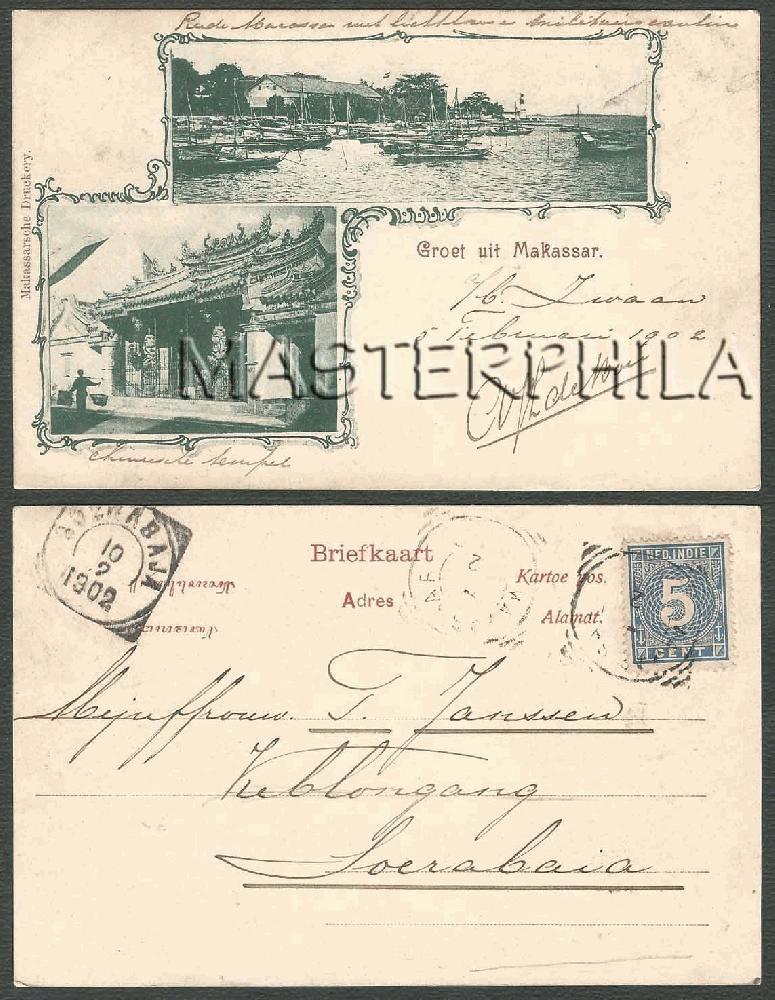 Rede Macassar met lichthaven militaire cantine
Makassarsche Drukkery.
Groet uit Makassar.
a/b. Zwaan
5 Februari 1902
chineesche tempel
MASTERPHILA
SOERABAJA
10
2
1902
Briefkaart
Adres
Kartoe pos.
Alamat.
NED. INDIE
5
CENT
Mejuffrouw. T. Janssen
Keblongang
Soerabaia